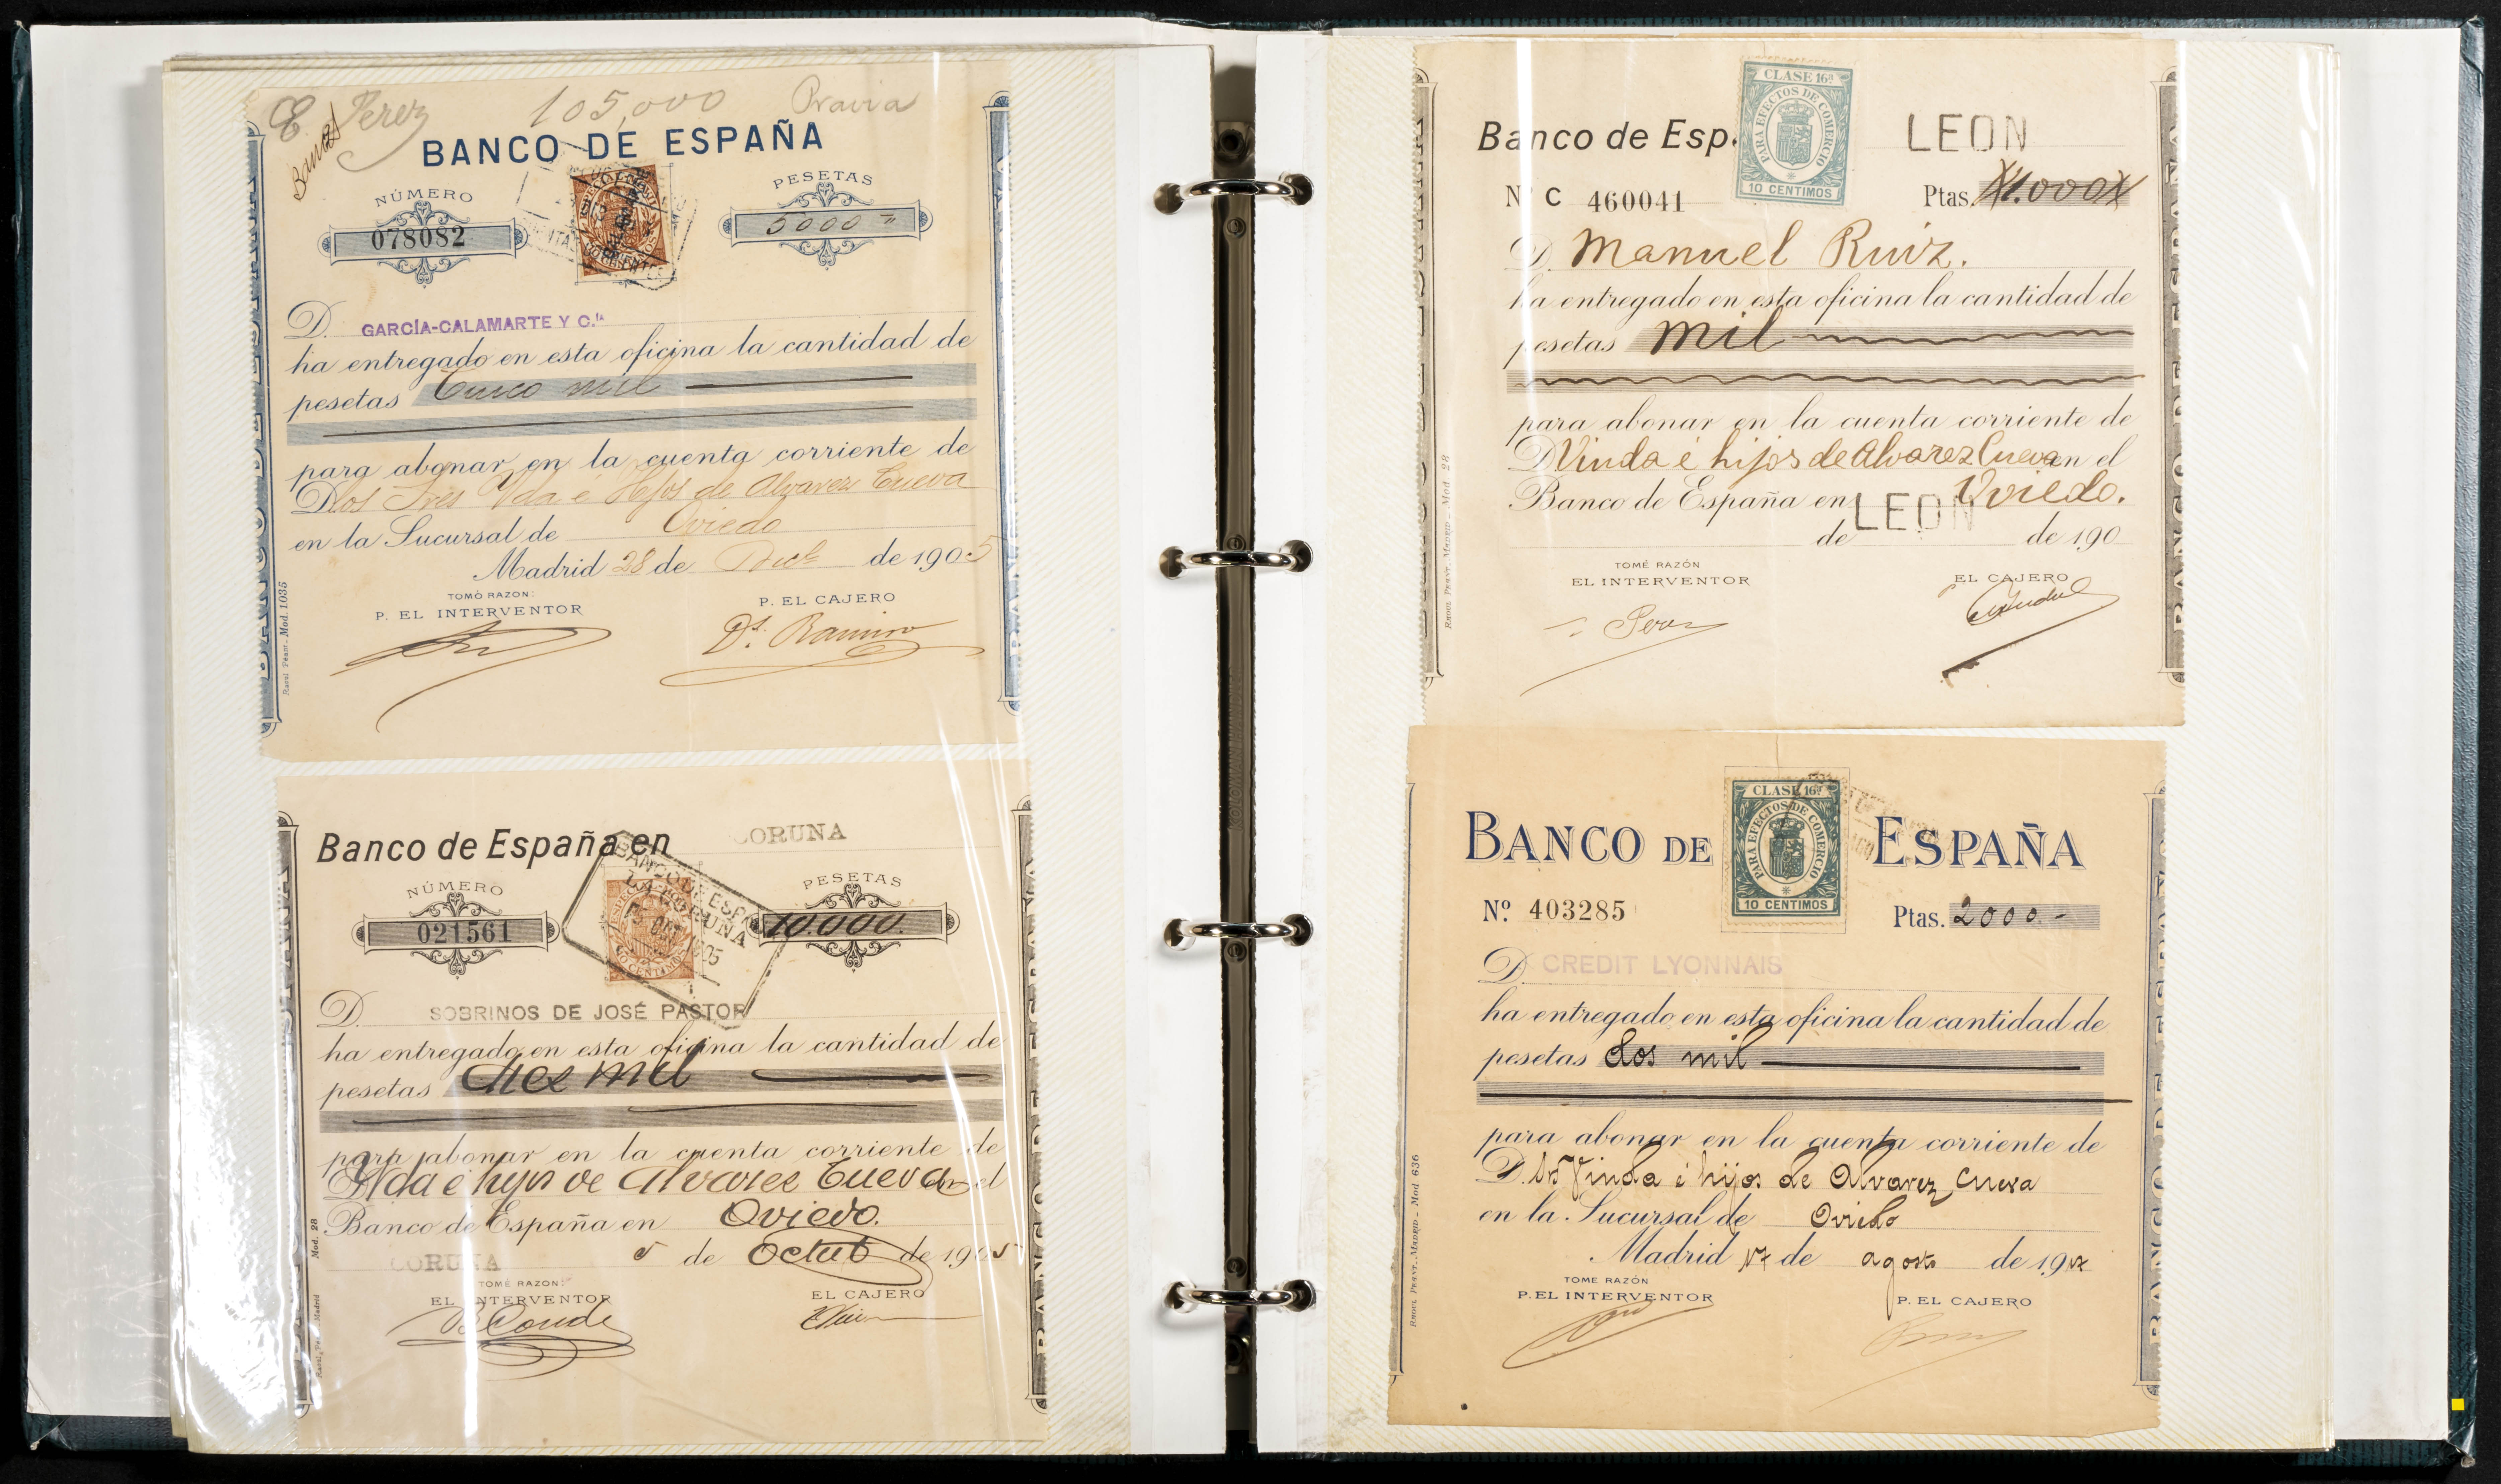 E. Perez 105,000 Pravia
BANCO DE ESPAÑA
NÚMERO
078082
PESETAS
5000
D. GARCÍA-CALAMARTE Y C.ía
ha entregado en esta oficina la cantidad de
pesetas Cinco mil
para abonar en la cuenta corriente de
D. los Sres Vda é Hijos de Alvarez Cueva
en la Sucursal de Oviedo
Madrid 28 de Dicbe de 1905
TOMÓ RAZON:
P. EL INTERVENTOR
P. EL CAJERO
D.s. Ramiro
Raoul Péant.-Mod. 1035
BANCO DE ESPAÑA
Banco de España en CORUNA
NÚMERO
021561
PESETAS
10.000.
BANCO DE ESPAÑA
LA CORUNA
OCT 1905
10 CENTIMOS
D. SOBRINOS DE JOSÉ PASTOR
ha entregado en esta oficina la cantidad de
pesetas diez mil
para abonar en la cuenta corriente de
D. Vda é hijos de Alvarez Cueva en el
Banco de España en Oviedo.
CORUNA 5 de Octub de 1905
TOMÉ RAZON:
EL INTERVENTOR
EL CAJERO
Conde
Mod. 28
BANCO DE ESPAÑA
CLASE 16ª
PARA EFECTOS DE COMERCIO
10 CENTIMOS
Banco de Esp LEON
Nº C 460041 Ptas. 1.000
D. Manuel Ruiz.
ha entregado en esta oficina la cantidad de
pesetas mil
para abonar en la cuenta corriente de
D. Viuda é hijos de Alvarez Cueva en el
Banco de España en LEON Oviedo.
de de 190
TOMÉ RAZÓN
EL INTERVENTOR
EL CAJERO
Raoul Péant.-Madrid.-Mod. 28
BANCO DE ESPAÑA
CLASE 16ª
PARA EFECTOS DE COMERCIO
10 CENTIMOS
BANCO DE ESPAÑA
Nº. 403285 Ptas. 2000.-
D. CREDIT LYONNAIS
ha entregado en esta oficina la cantidad de
pesetas dos mil
para abonar en la cuenta corriente de
D. Sres Viuda é hijos de Alvarez Cueva
en la Sucursal de Oviedo
Madrid 17 de agosto de 1917
TOME RAZÓN
P. EL INTERVENTOR
P. EL CAJERO
Raoul Péant.-Madrid.-Mod 636
BANCO DE ESPAÑA